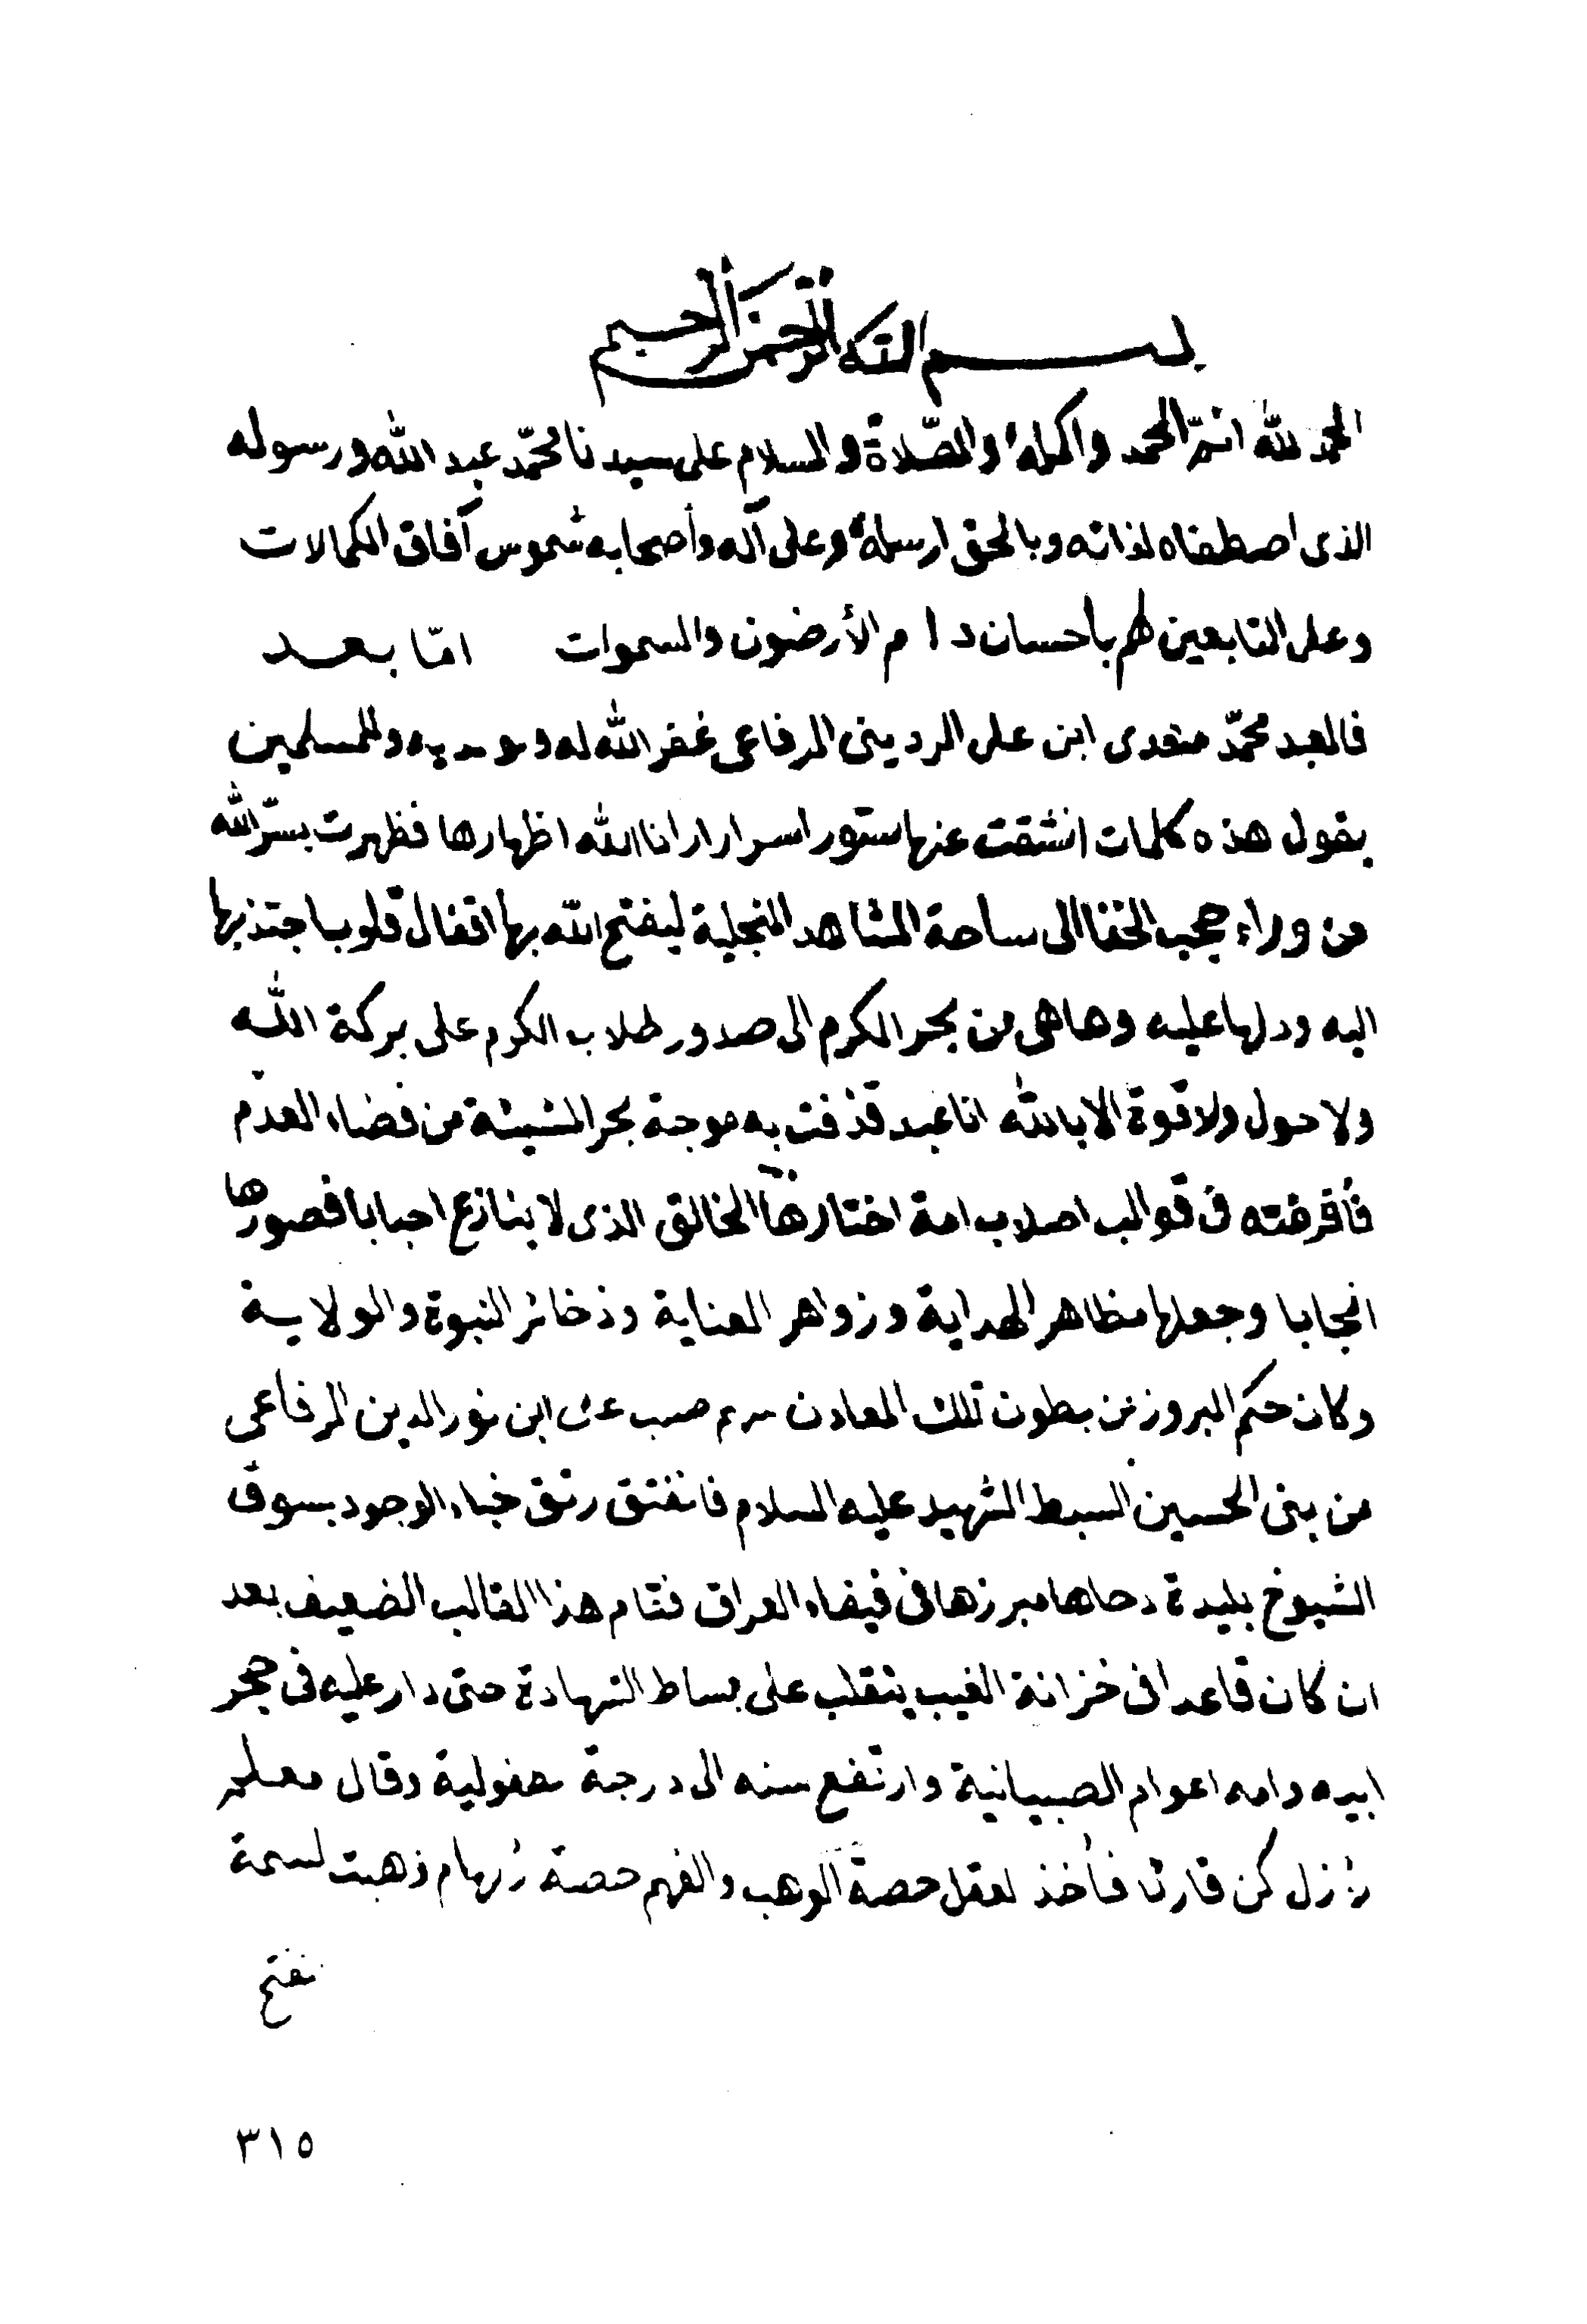 بسم الله الرحمن الرحيم
الحمد لله اتمّ الحمد واكمله والصّلاة والسلام على سيدنا محمّد عبد الله ورسوله
الذى اصطفاه لذاته وبالحق ارسله وعلى آله وأصحابه شموس آفاق الكمالات
وعلى التابعين لهم بأحسان دام الأرضون والسموات امّا بعد
فالعبد محمّد مهدى ابن على الردينى الرفاعى غفر الله له ولوالديه وللمسلمين
يقول هذه كلمات انشقت عنها ستور اسرار ارانا الله اظهارها فظهرت بسرّ الله
من وراء حجب الخفا الى ساحة المشاهد المنجلية ليفتح الله بها اقفال قلوب اجتذبها
اليه ودلها عليه وها هى من بحر الكرم الى صدور طلاب الكرم على بركة الله
ولا حول ولا قوة الا بالله انا عبد قذفت به موجة بحر المشيئة من فضاء العدم
فأفرغته فى قوالب اصلاب امة اختارها الخالق الذى لا ينازع احبابا فصورها
انجابا وجعلها مظاهر الهداية وزواهر العناية وذخائر النبوة والولاية
وكان حكم البروز من بطون تلك المعادن من صلب على ابن نور الدين الرفاعى
من بنى الحسين السبط الشهيد عليه السلام فانفتق رتق خباء الوجود بسوق
الشيوخ بليدة دحاها مبرزها فى فيفاء العراق فقام هذا القالب الضعيف بعد
ان كان قاعدا فى خزانة الغيب يتقلب على بساط الشهادة حتى دار عليه فى حجر
ابيه وامه اعوام الصبيانية وارتفع سنه الى درجة معقولية وقال معلم
الازل كن قارئا فأخذ العقل حصة الوهب والفهم حصة الالهام ذهبت نسمة
نفتح
٣١٥